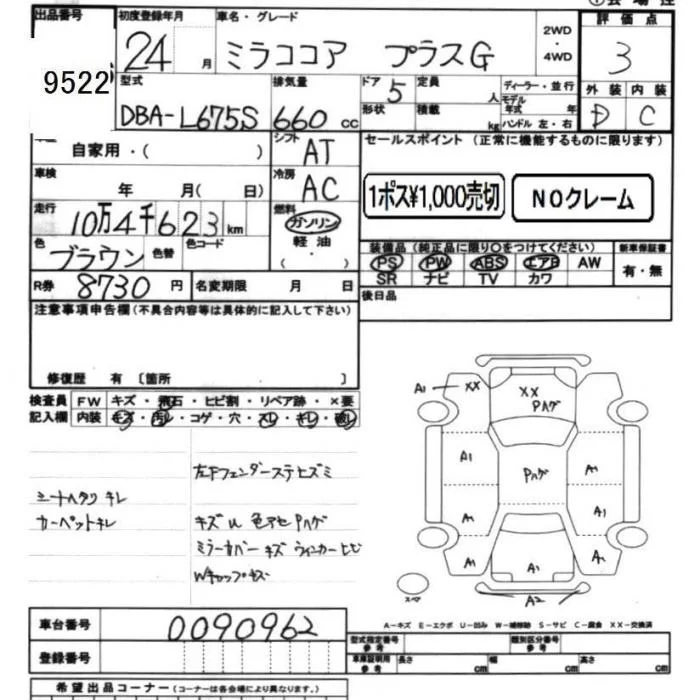 ①会場控
出品番号 初度登録年月 車名・グレード 2WD・4WD 評価点
9522 24 月 ミラココア プラスG 3
型式 排気量 ドア 定員 ディーラー・並行 外装 内装
DBA-L675S 660 cc 5 人 モデル年式 年 D C
形状 積載 kg ハンドル 左・右
自家用・( ) シフト AT セールスポイント (正常に機能するものに限ります)
車検 年 月( 日) 冷房 AC 1ポス¥1,000売切 NOクレーム
走行 10万4千623km 燃料 ガソリン
軽油・( )
色 ブラウン 色替 色コード 装備品 (純正品に限り○をつけてください) 新車保証書
PS PW ABS エアB AW 有・無
SR ナビ TV カワ
R券 8730 円 名変期限 月 日 後日品
注意事項申告欄(不具合内容等は具体的に記入して下さい)
修復歴 有 〔箇所 〕
検査員 FW キズ・飛石・ヒビ割・リペア跡・×要
記入欄 内装 キズ・汚レ・コゲ・穴・スレ・キレ・破レ
左Fフェンダーステヒズミ
シートヘタリ キレ
カーペットキレ キズU 色アセ Pハゲ
ミラーカバー キズ ウィンカーヒビ
Wキャップキズ
A1 XX XX Pハゲ
A1 Pハゲ A1
A1 A1
A1 A1 A1
スペア A2
A-キズ E-エクボ U-凹み W-補修跡 S-サビ C-腐食 XX-交換済
車台番号 0090962
登録番号
型式指定番号 参考 類別区分番号 参考
車庫証明用 参考 長さ cm 幅 cm 高さ cm
希望出品コーナー(コーナーは各会場により異なります。)